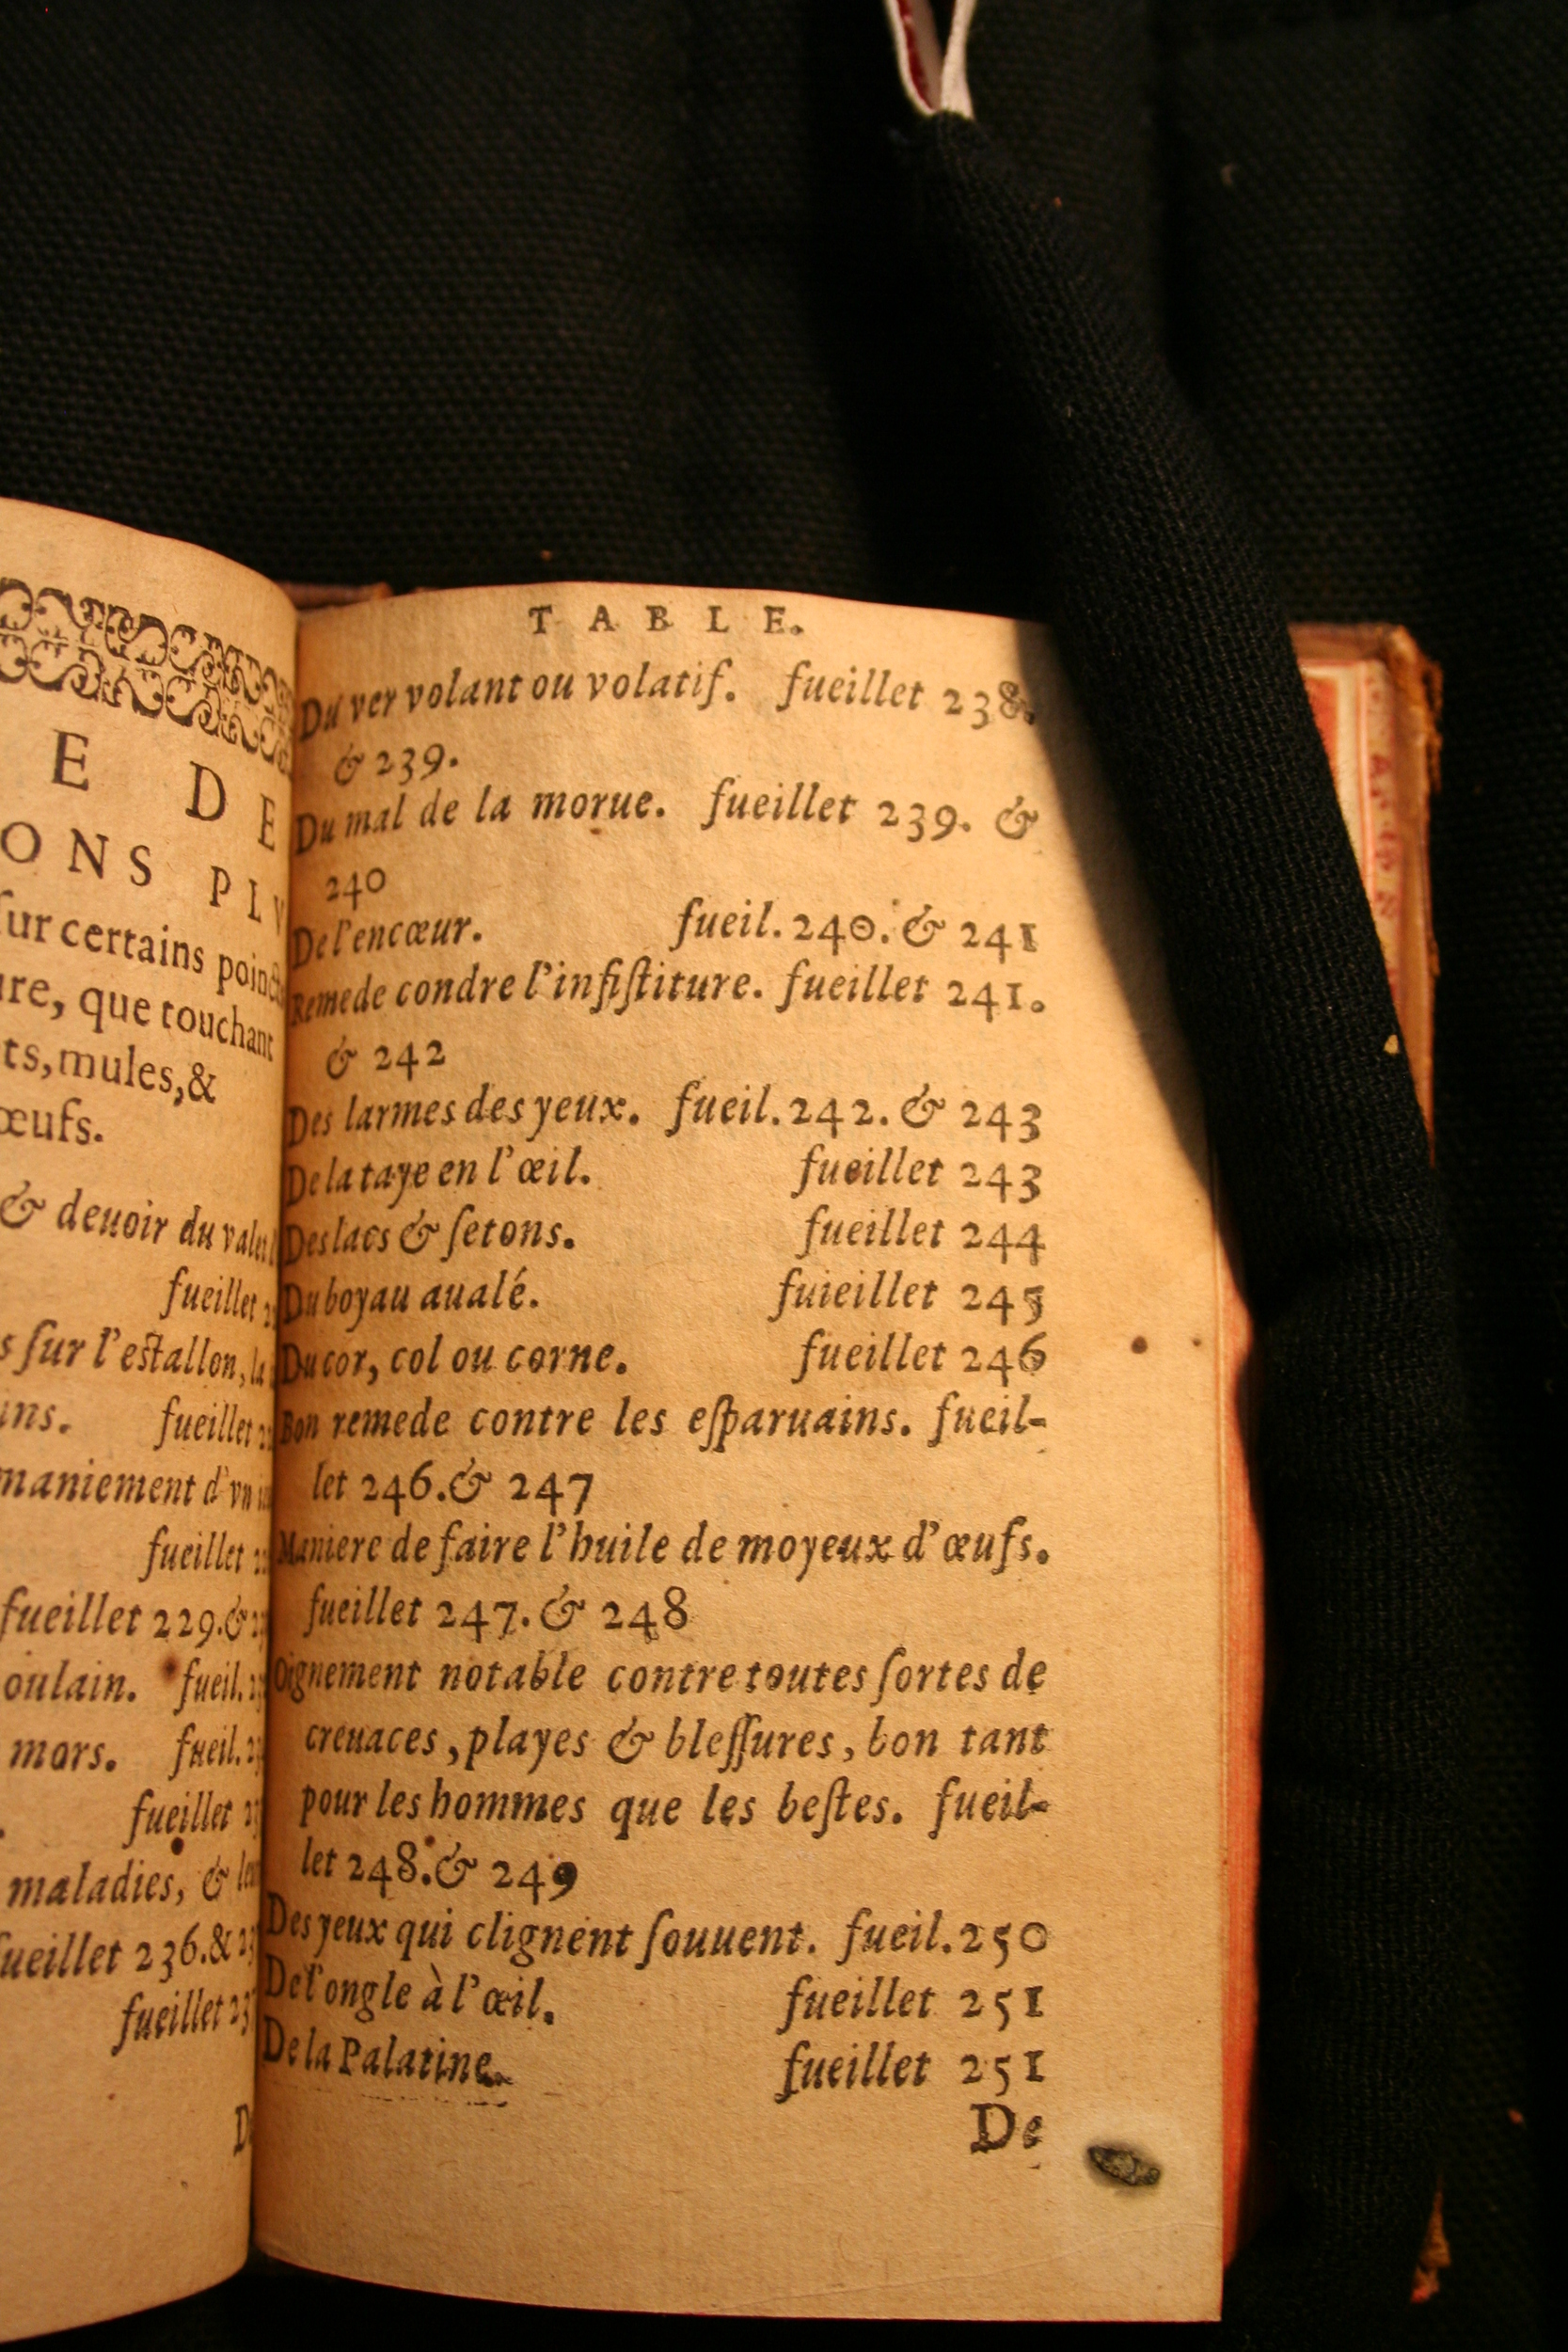 E DE
ONS PLV
ſur certains poinc
re, que touchant
ts, mules, &
œufs.
& deuoir du valet
fueillet
s ſur l'eſtallon, la
ins. fueillet
maniement d'vn
fueillet
fueillet 229. &
oulain. fueil.
mors. fueil.
fueillet
maladies, &
fueillet 236. &
fueillet
TABLE.
Du ver volant ou volatif. fueillet 238.
& 239.
Du mal de la morue. fueillet 239. &
240
De l'encœur. fueil. 240. & 241
Remede condre l'infiſtiture. fueillet 241.
& 242
Des larmes des yeux. fueil. 242. & 243
De la taye en l'œil. fueillet 243
Des lacs & ſetons. fueillet 244
Du boyau aualé. fuieillet 245
Du cor, col ou corne. fueillet 246
Bon remede contre les eſparuains. fueil-
let 246. & 247
Maniere de faire l'huile de moyeux d'œufs.
fueillet 247. & 248
Oignement notable contre toutes ſortes de
creuaces, playes & bleſſures, bon tant
pour les hommes que les beſtes. fueil-
let 248. & 249
Des yeux qui clignent ſouuent. fueil. 250
De l'ongle à l'œil. fueillet 251
De la Palatine. fueillet 251
De